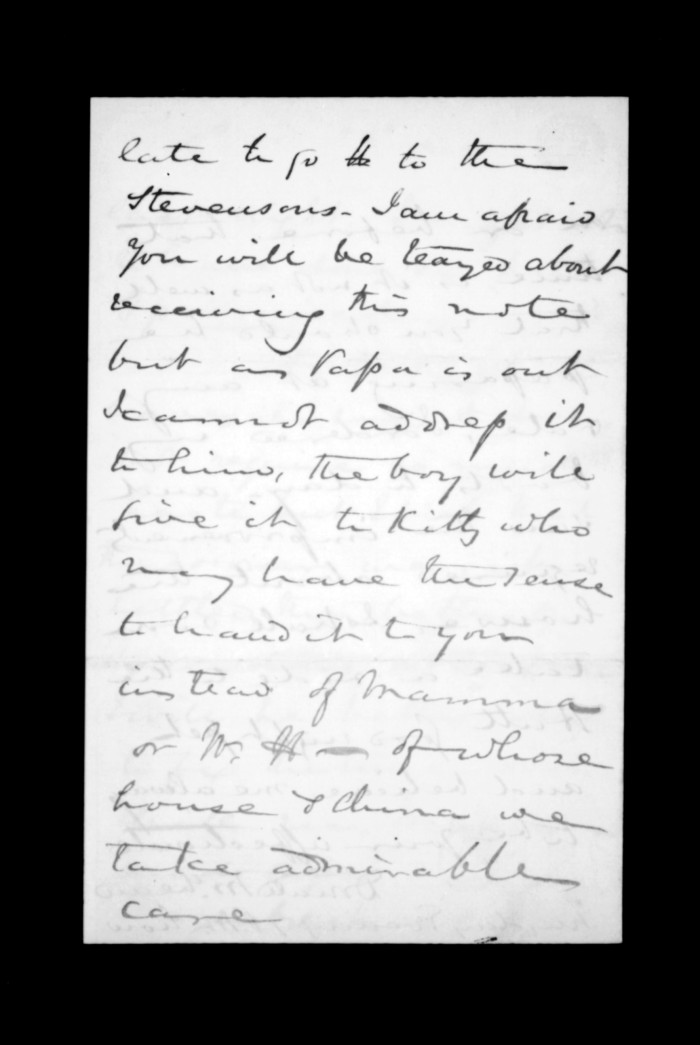 late to go to the
Stevensons - I am afraid
you will be teazed about
receiving this note
but as Papa is out
I cannot address it
to him, the boy will
give it to Kitty who
may have the sense
to hand it to you
instead of Mamma
or W. H — of whose
house & china we
take admirable
care